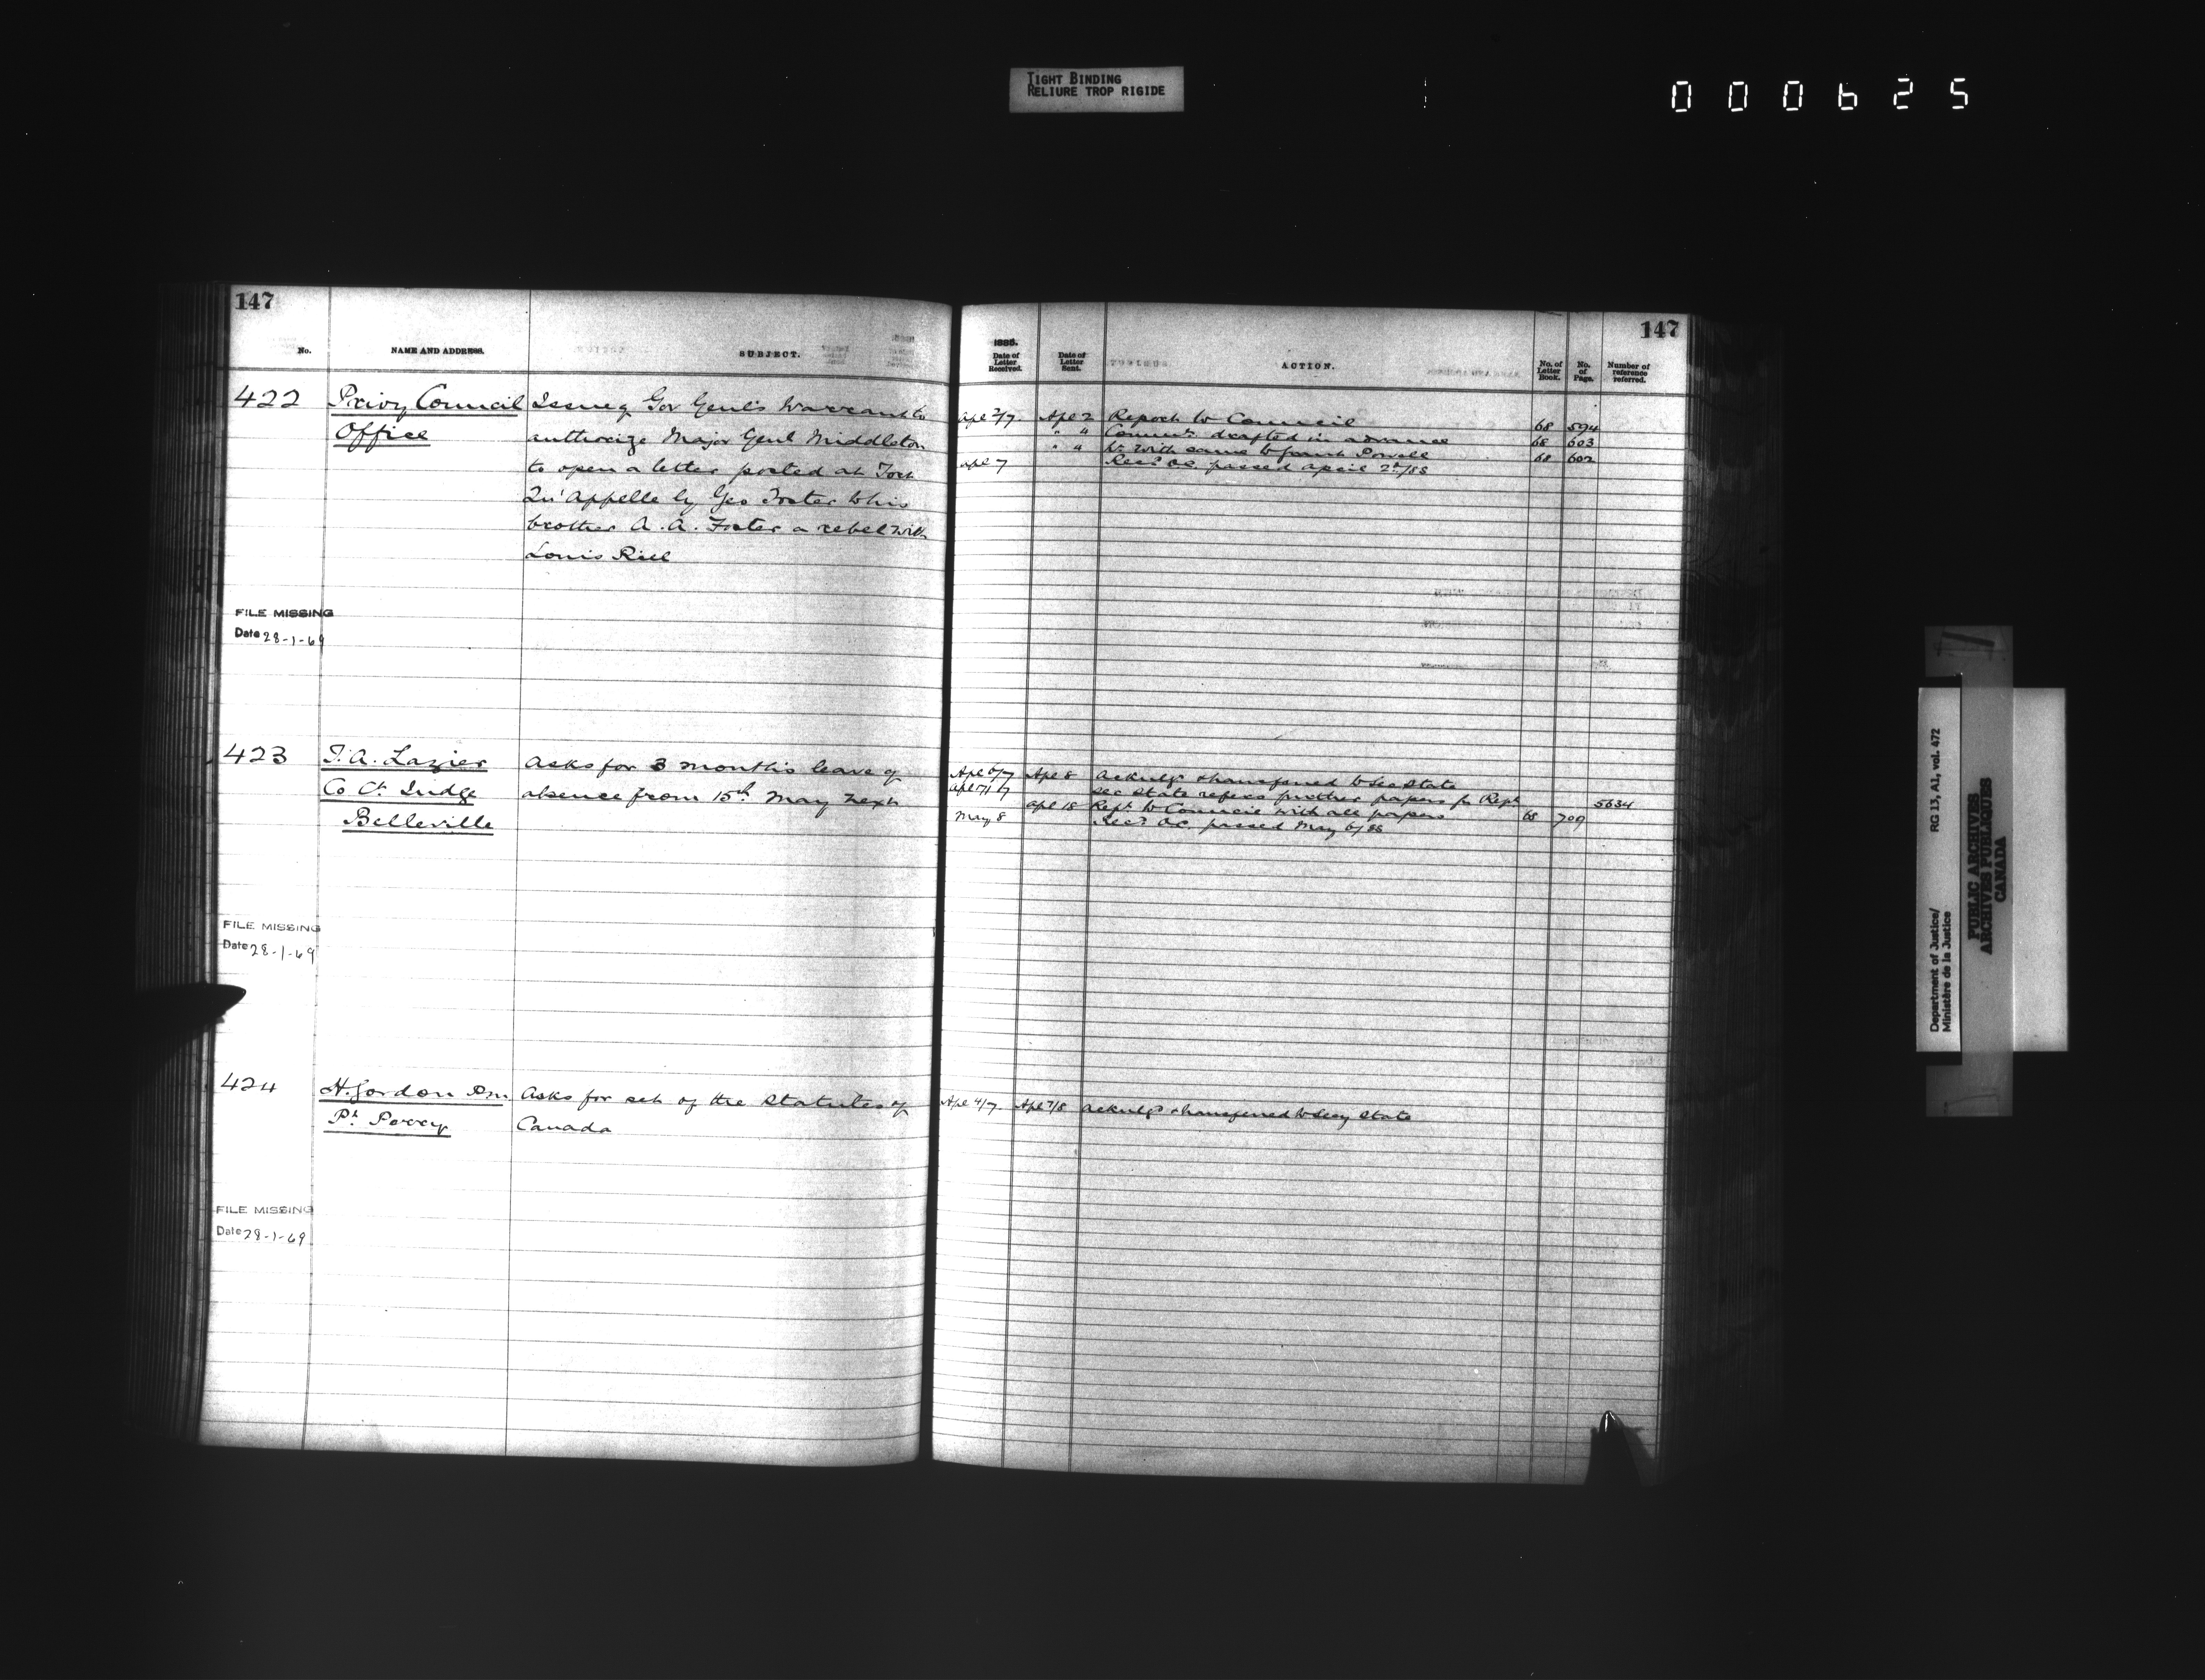 TIGHT BINDING
RELIURE TROP RIGIDE
000625
147
No.
NAME AND ADDRESS.
SUBJECT.
422
Privy Council
Office
Issue of Gov Genl's Warrant to
authorize Major Genl Middleton
to open a letter posted at Fort
Qu'Appelle by Geo Foster to his
brother A. A. Foster a rebel with
Louis Riel
FILE MISSING
Date 28-1-69
423
T. A. Lazier
Co Ct Judge
Belleville
Asks for 3 months leave of
absence from 15th May next
FILE MISSING
Date 28-1-69
424
H. Gordon P.M.
Pt. Perry
Asks for set of the Statutes of
Canada
FILE MISSING
Date 28-1-69
147
1885.
Date of Letter Received.
Date of Letter Sent.
ACTION.
No. of Letter Book.
No. of Page.
Number of reference referred.
Apl 2/7 Apl 2 Report to Council 68 594
" " drafted in advance 68 603
" " with same to Grant Powell 68 602
Apl 7 Recd O.C. passed April 2d/85
Apl 6/7 Apl 8 Acknlgd & transferred to Sec State
Apl 17/17 Sec State refers further papers for Rept 5634
Apl 18 Rept to Council with all papers 68 709
May 8 Recd O.C. passed May 6/85
Apl 4/7 Apl 7/8 Acknlgd & transferred to Secy State
Department of Justice/
Ministère de la Justice
RG 13, A1, vol. 472
PUBLIC ARCHIVES
ARCHIVES PUBLIQUES
CANADA